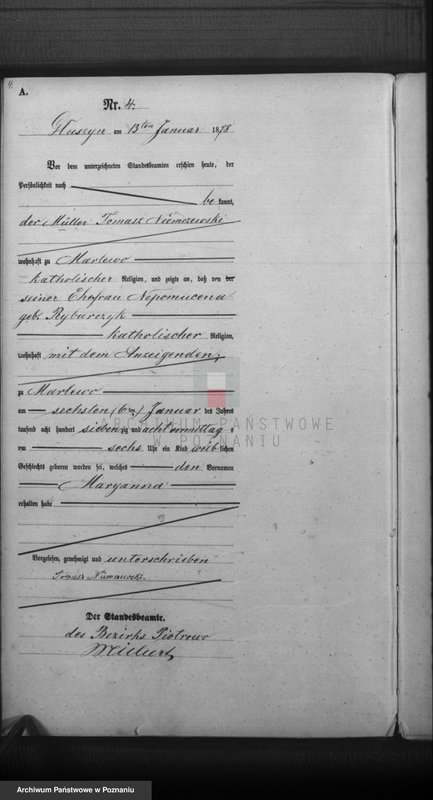 4.
A.
Nr. 4.
Głuszyn am 13ten Januar 1878
Vor dem unterzeichneten Standesbeamten erschien heute, der
Persönlichkeit nach
be kannt,
der Müller Tomasz Niemczewski
wohnhaft zu Marlewo
katholischer Religion, und zeigte an, daß von der
seiner Ehefrau Nepomucena
geb. Rybarczyk
katholischer Religion,
wohnhaft mit dem Anzeigenden,
zu Marlewo
am sechsten (6ten) Januar des Jahres
tausend acht hundert siebenzig und acht vormittag s
um sechs Uhr ein Kind weiblichen
Geschlechts geboren worden sei, welches den Vornamen
Maryanna
erhalten habe
Vorgelesen, genehmigt und unterschrieben
Tomasz Niemczewski.
Der Standesbeamte.
des Bezirks Piotrowo
ARCHIWUM PAŃSTWOWE
W POZNANIU
Archiwum Państwowe w Poznaniu